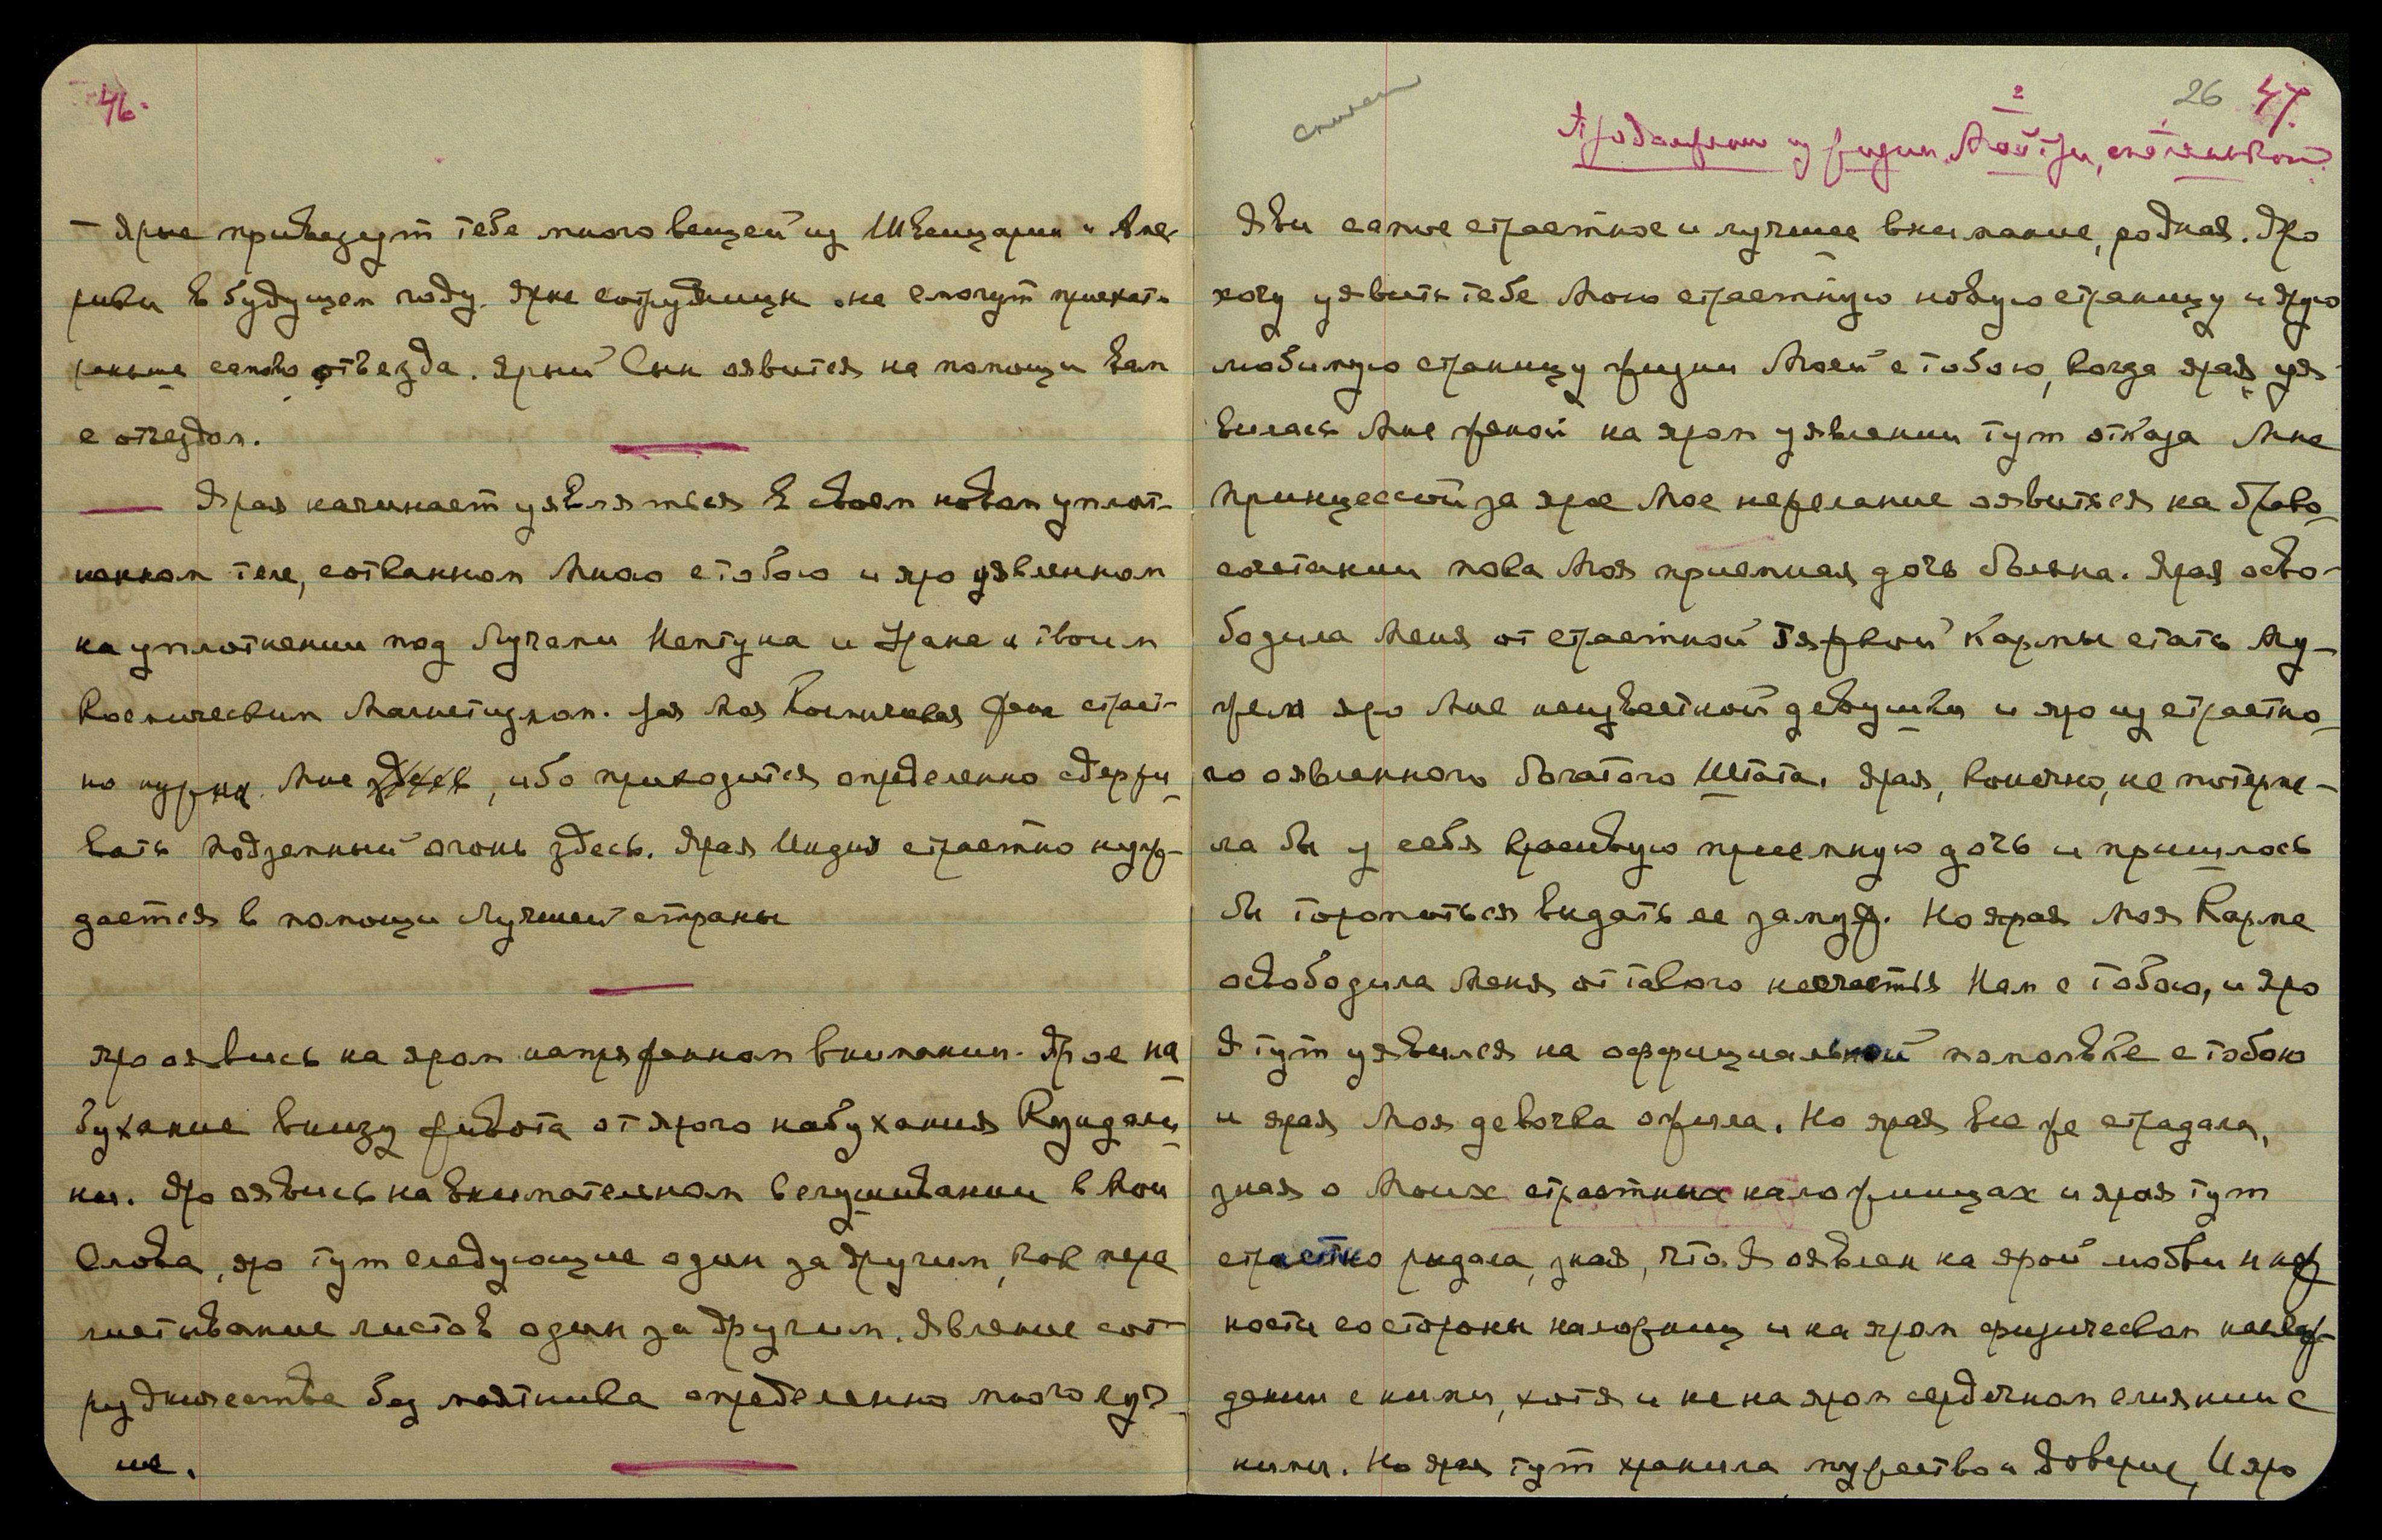 46.
— Ярые привезут тебе много вещей из Швейцарии и Аме-
рики в будущем году. Ярые сотрудницы не смогут приехать
раньше самого отъезда. Ярый Сын явится на помощи Вам
с отъездом.
— Ярая начинает уявляться в своем новом уплот-
ненном теле, сотканном Мною с тобою и яро уявленном
на уплотнении под Лучами Нептуна и Урана и твоим
Космическим Магнетизмом. Моя Космическая Жена страст-
но нужна Мне здесь, ибо приходится определенно сдержи-
вать подземный огонь здесь. Ярая Индия страстно нуж-
дается в помощи Лучшей страны
Яро оявись на яром напряженном внимании. Ярое на-
бухание внизу живота от ярого набухания Кундали-
ни. Яро оявись на внимательном вслушивании в Мои
Слова, яро тут следующие один за другим, как пере
листывание листов один за другим. Явление сот-
рудничества без маятника определенно много луч-
ше.
26 47.
2
Продолжение из жизни Мойтри,
Яви самое страстное и лучшее внимание, родная. Яро
хочу уявить тебе Мою страстную новую страницу и ярую
любимую страницу жизни Моей с тобою, когда ярая уя-
вилась Мне женой на яром уявлении тут отказа Мне
принцессой за ярое Мое нежелание оявиться на брако-
сочетании пока Моя приемная дочь больна. Ярая осво-
бодила Меня от страстной тяжкой Кармы стать Му-
жем яро Мне неизвестной девушки и яро из страстно-
го оявленного богатого Штата. Ярая, конечно, не потерпе-
ла бы у себя красивую приемную дочь и пришлось
бы торопиться выдать ее замуж. Но ярая Моя Карма
освободила Меня от такого несчастья Нам с тобою, и яро
Я тут уявился на оффициальной помолвке с тобою
и ярая Моя девочка ожила. Но ярая все же страдала,
зная о Моих страстных наложницах и ярая тут
страстно рыдала, зная, что Я оявлен на ярой любви и неж
ности со стороны наложниц и на яром физическом наслаж-
дении с ними, хотя и не на яром сердечном слиянии с
ними. Но ярая тут хранила мужество и доверие, И яро